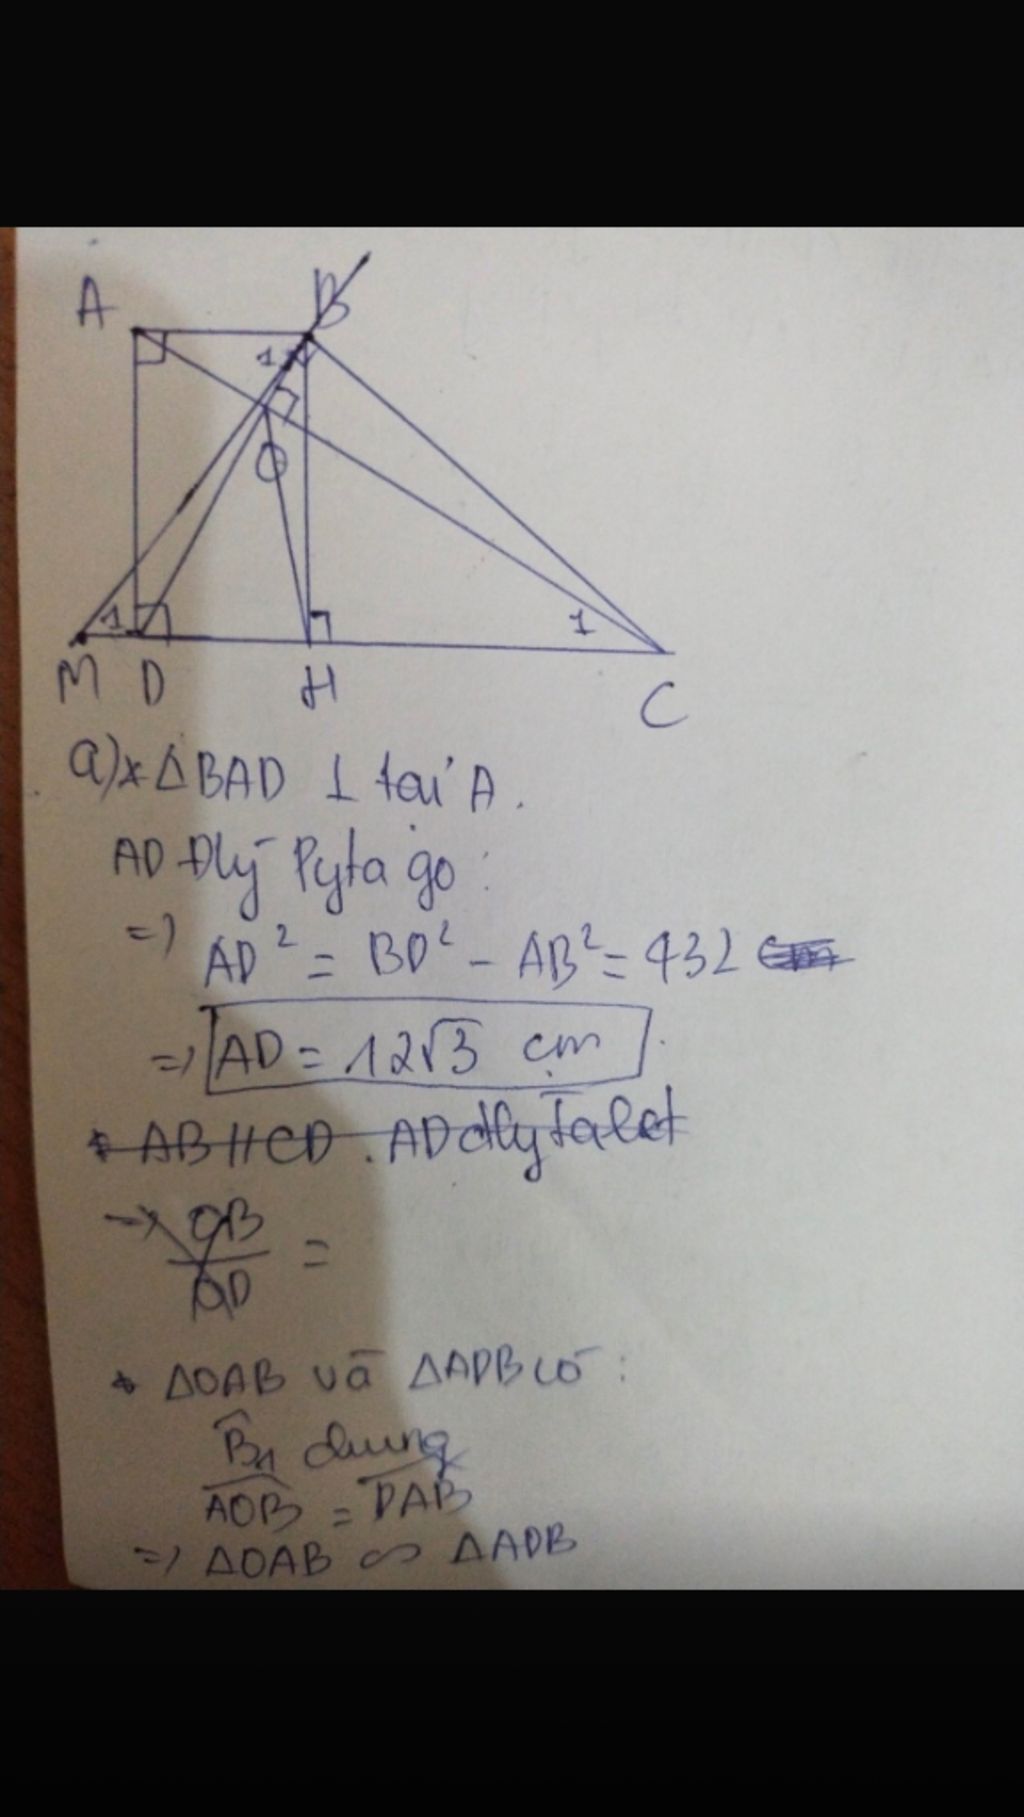 A
B
1
O
1
1
M D H C
a) * ΔBAD ⊥ tại A.
AD Đlý Pytago:
=> AD² = BD² - AB² = 432
=> AD = 12√3 cm.
* AB // CD. AD đly Talet
=> OB/OD =
* ΔOAB và ΔADB có:
B̂₁ chung
AOB = DAB
=> ΔOAB ∽ ΔADB